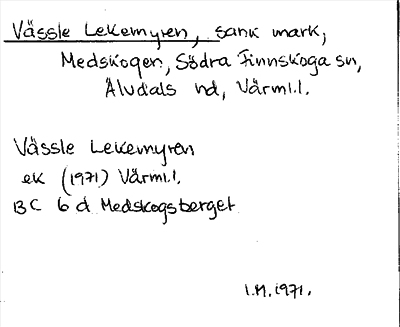 Vässle Lekemyren, sank mark,
Medskogen, Södra Finnskoga sn,
Älvdals hd, Värml.
Vässle Lekemyren
ek (1971) Värml.
BC 6 d Medskogsberget
I.M. 1971.